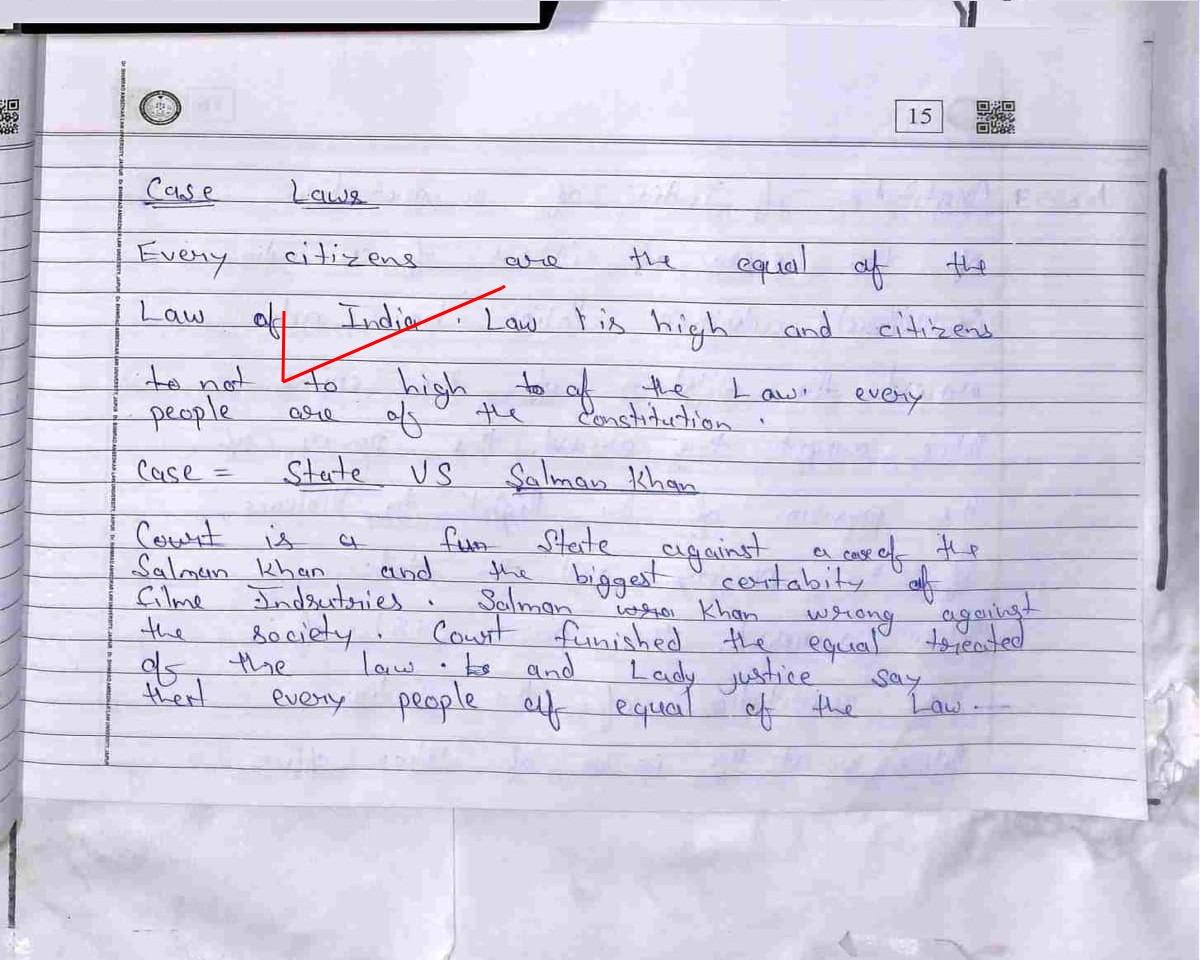 15
Case Laws
Every citizens are the equal of the
Law of India. Law is high and citizens
to not to high to of the Law. every
people are of the constitution.
Case = State VS Salman Khan
Court is a fun State against a case of the
Salman khan and the biggest ceritabity of
filme Indsutries. Salman khan wrong against
the society. Court funished the equal treated
of the law. and Lady justice say
thet every people of equal of the Law.